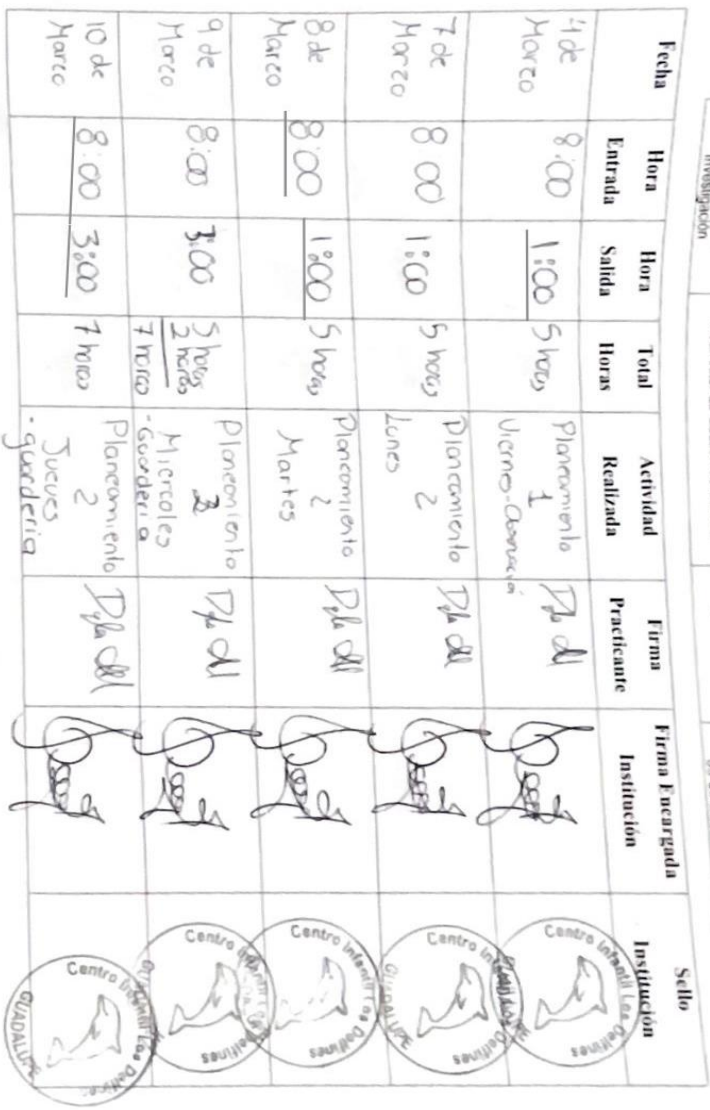 Investigación
Fecha
Hora
Entrada
Hora
Salida
Total
Horas
Actividad
Realizada
Firma
Practicante
Firma Encargada
Institución
Sello
Institución
4 de
Marzo
8:00
1:00
5 horas
Planeamiento
1
Viernes-
Centro Infantil Los Delfines
7 de
Marzo
8 00
1:00
5 horas
Planeamiento
2
Lunes
Centro
GUADALUPE
8 de
Marzo
8:00
1:00
5 horas
Planeamiento
2
Martes
Centro Infantil Los Delfines
9 de
Marzo
8:00
3:00
5 horas
2 horas
7 horas
Planeamiento
2
Miercoles
-Guarderia
Centro
Delfines
10 de
Marzo
8:00
3:00
7 horas
Planeamiento
2
Jueves
-guarderia
Centro Infantil Los Delfines
GUADALUPE